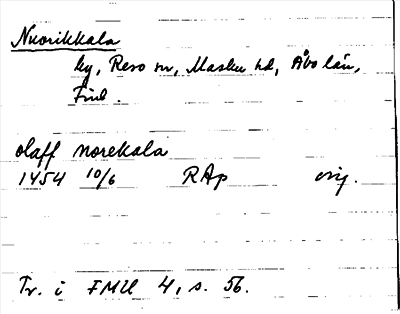 Nuorikkala
by, Reso sn, Masku hd, Åbo län,
Finl.
olaff norekala
1454 10/6 RAp orig.
Tr. i FMU 4, s. 56.